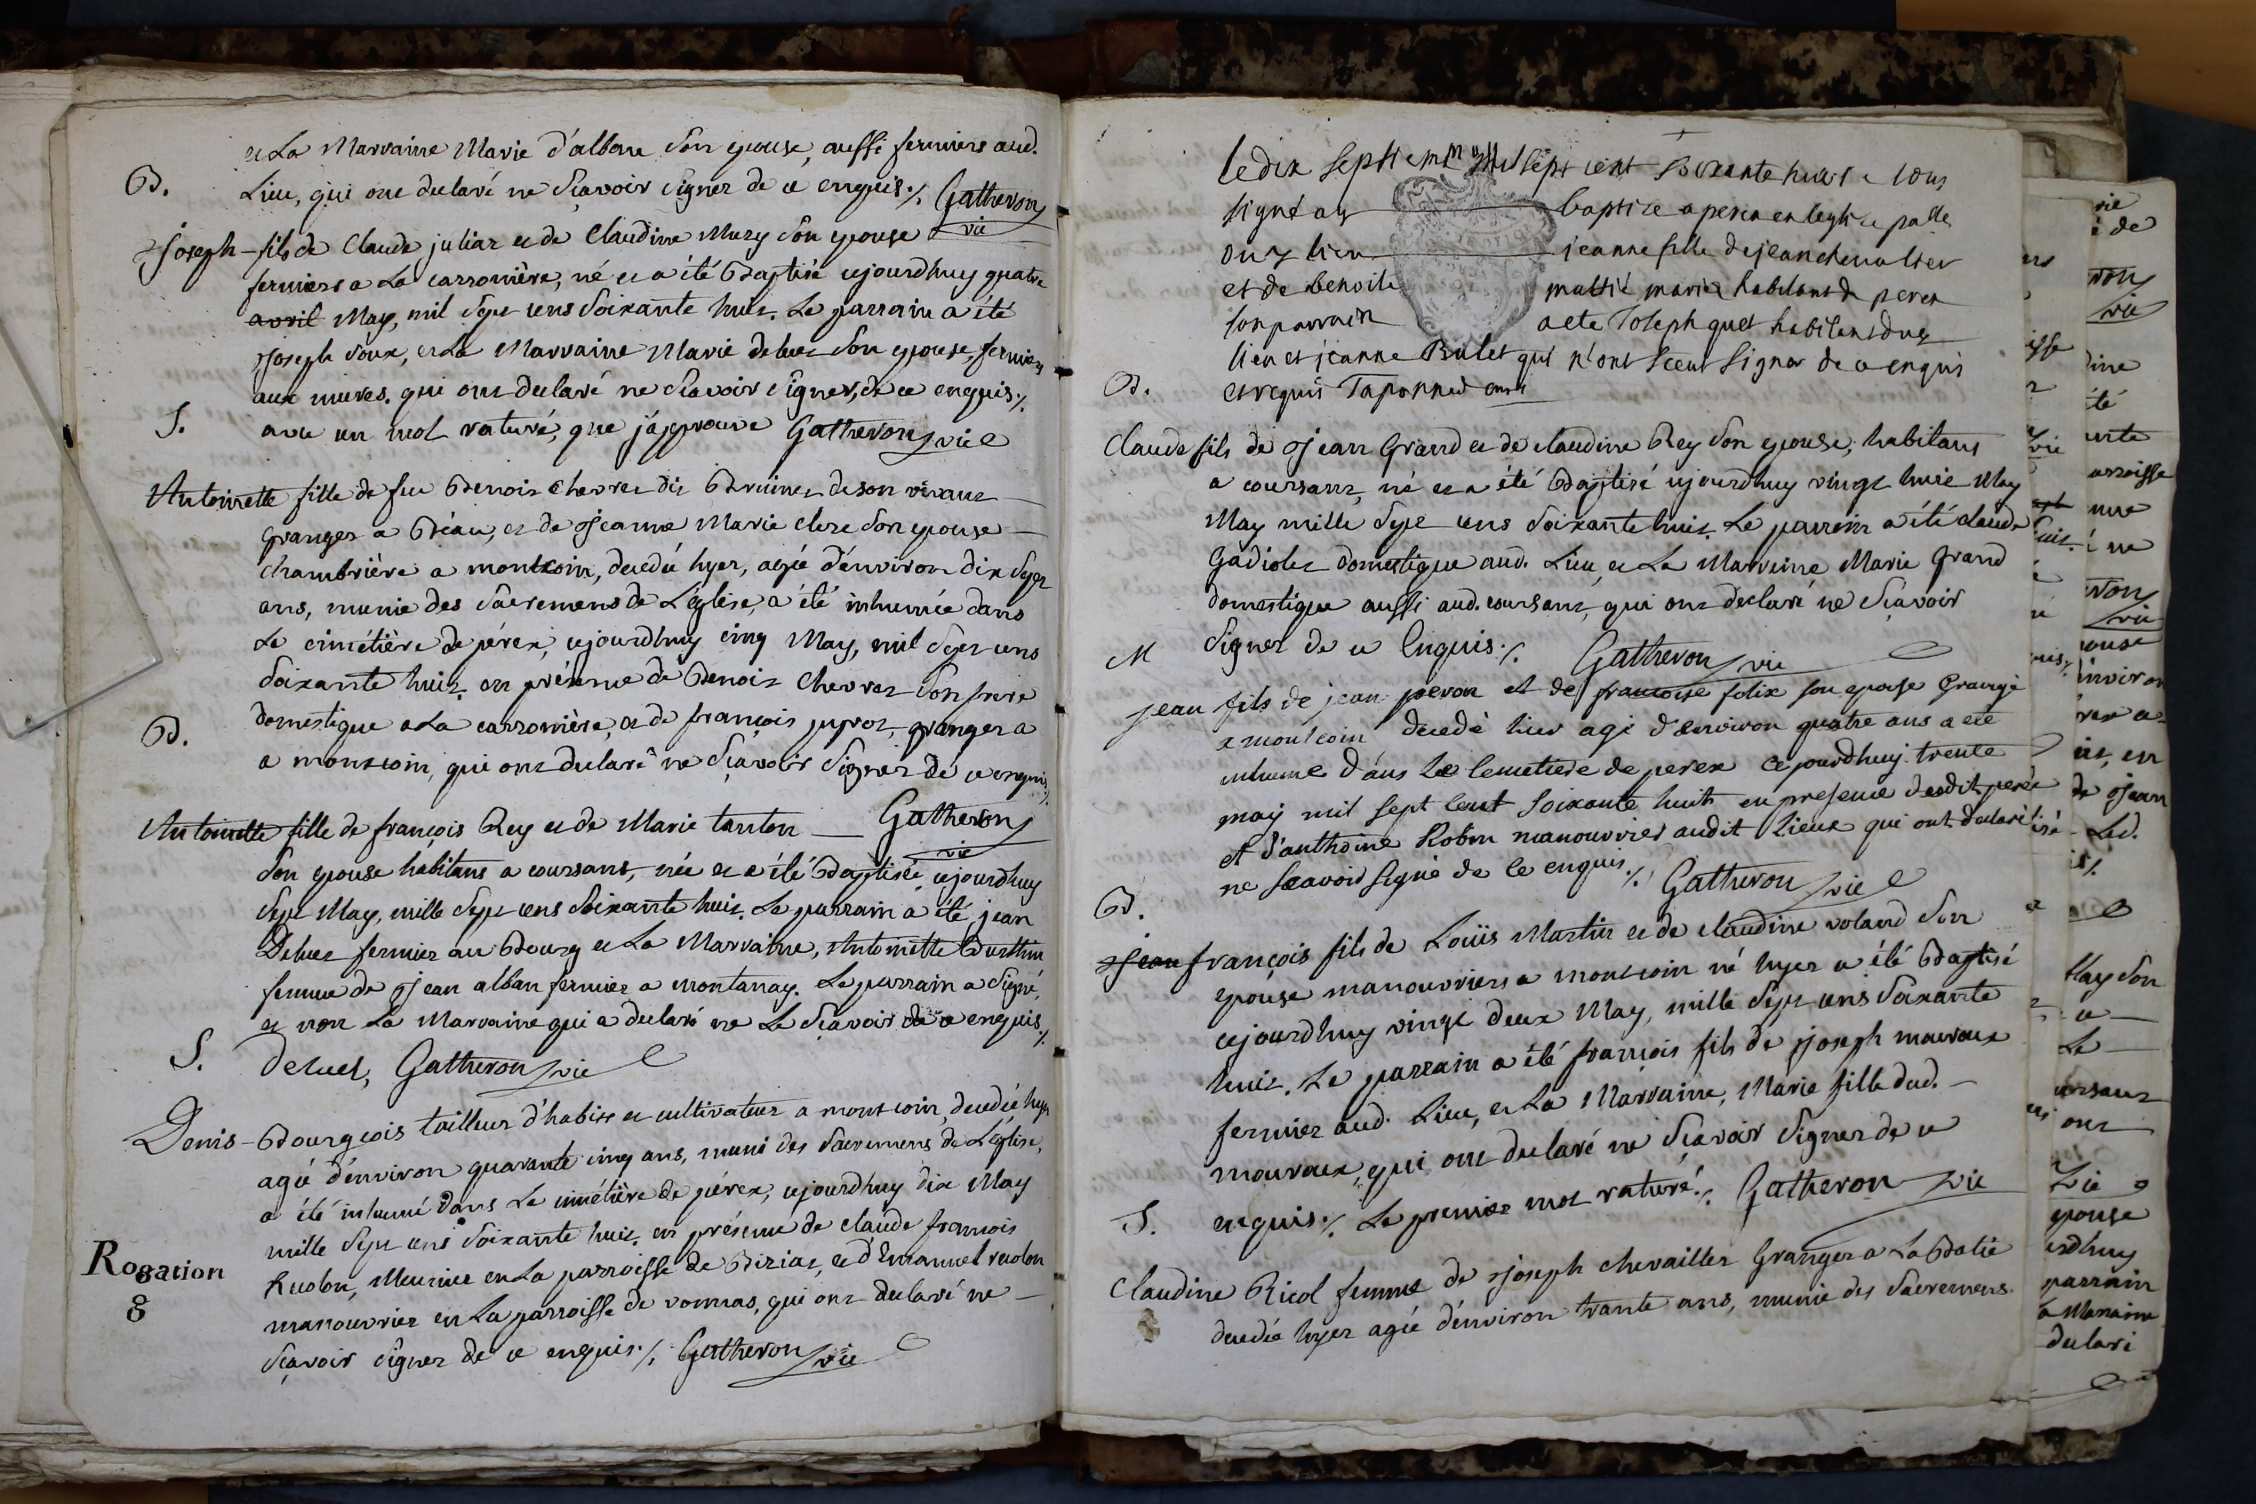 et La Marraine Marie d'albane Son epouse, aussi fermiers aud.
B.
Lieu, qui ont declaré ne Sçavoir signer de ce enquis ./. Gatheron
vic
Joseph - fils de Claude juliar et de Claudine Mury Son epouse
fermiers a La carronière, né et a été Baptisé cejourdhuy quatre
avril May, mil Sept cens Soixante huit. Le parrain a été
Joseph roux, et La Marraine Marie deluet Son epouse, fermiers
aux mures. qui ont declaré ne Sçavoir signer, de ce enquis ./.
S.
avec un mot raturé, que j'approuve Gatheron vic
Antoinette fille de feu Benoit Chevret dit Bruinet de son vivant
granger a Béau, et de Jeanne Marie clere Son epouse
chambrière a montcoin, decedée hyer, agée d'environ dix Sept
ans, munie des Sacremens de L'église, a été inhumée dans
Le cimétière de pérex, cejourdhuy cinq May, mil Sept cens
Soixante huit. en présence de Benoit Chevret Son frere
domestique a La carronière, et de françois jupvot, granger a
B.
a montcoin, qui ont declaré ne Sçavoir Signer de ce enquis ./.
Antoinette fille de françois Rey et de Marie tanton Gatheron
vic
Son epouse habitans a coursant, née et a été Baptisée cejourdhuy
Sept May, mille Sept cens Soixante huit. Le parrain a été jean
Deluet fermier au Bourg et La Marraine, Antoinette
femme de Jean alban fermier a montanay. Le parrain a Signé,
et non La Marraine qui a declaré ne Le Sçavoir de ce enquis ./.
S.
deluet, Gatheron vic
Denis - Bourgeois tailleur d'habits et cultivateur a montcoin, decedé hyer
agé d'environ quarante cinq ans, muni des Sacremens de L'église,
a été inhumé dans Le cimétière de pérex, cejourdhuy dix May
mille Sept cens Soixante huit. en présence de claude françois
Ruolon, Meunier en La parroisse de Biziat, et d'Emanuel ruolon
Rogation
8
manouvrier en La parroisse de vonnas, qui ont declaré ne
Sçavoir signer de ce enquis ./. Gatheron vic
le dix Sept mil sept cent Soixante huit Sous
signé ay baptizé a perex en leglize
jeanne fille de jean chevalier
et de benoite marie habitant de perex
son parrain a ete Joseph quet habitant dud
lieu et jeanne Bulet qui n'ont Sceut Signer de ce enquis
B.
et requis Taponned
Claude fils de Jean Grand et de claudine Rey Son epouse, habitans
a coursant, né et a été Baptisé cejourdhuy vingt huit May
May mille Sept cens Soixante huit. Le parrain a été claude
Gadiolet domestique aud. Lieu, et La Marraine Marie Grand
domestique aussi aud. coursant, qui ont declaré ne Sçavoir
Signer de ce Enquis ./. Gatheron vic
M
jean fils de jean peron et de francoise folix son epouse Grangé
a montcoin decedé hier agé d'environ quatre ans a ete
inhumé dans Le Cemetiere de perex Cejourdhuy trente
may mil sept Cent Soixante huit en presence dudit pere
et d'anthoine Robin manouvrier audit Lieux qui ont declaré
ne scavoir signé de ce enquis ./. Gatheron vic
B.
Jean françois fils de Loüis Martin et de claudine voland Son
epouse manouvriers a montcoin né hyer a été Baptisé
cejourdhuy vingt deux May, mille Sept cens Soixante
huit. Le parrain a été françois fils de Joseph mauroux
fermier aud. Lieu, et La Marraine, Marie fille dud.
mouroux, qui ont declaré ne Sçavoir Signer de ce
enquis ./. Le premier mot raturé ./. Gatheron vic
S.
Claudine Ricol femme de Joseph chevailler Granger a La Batie
decedée hyer agée d'environ trante ans, munie des Sacremens